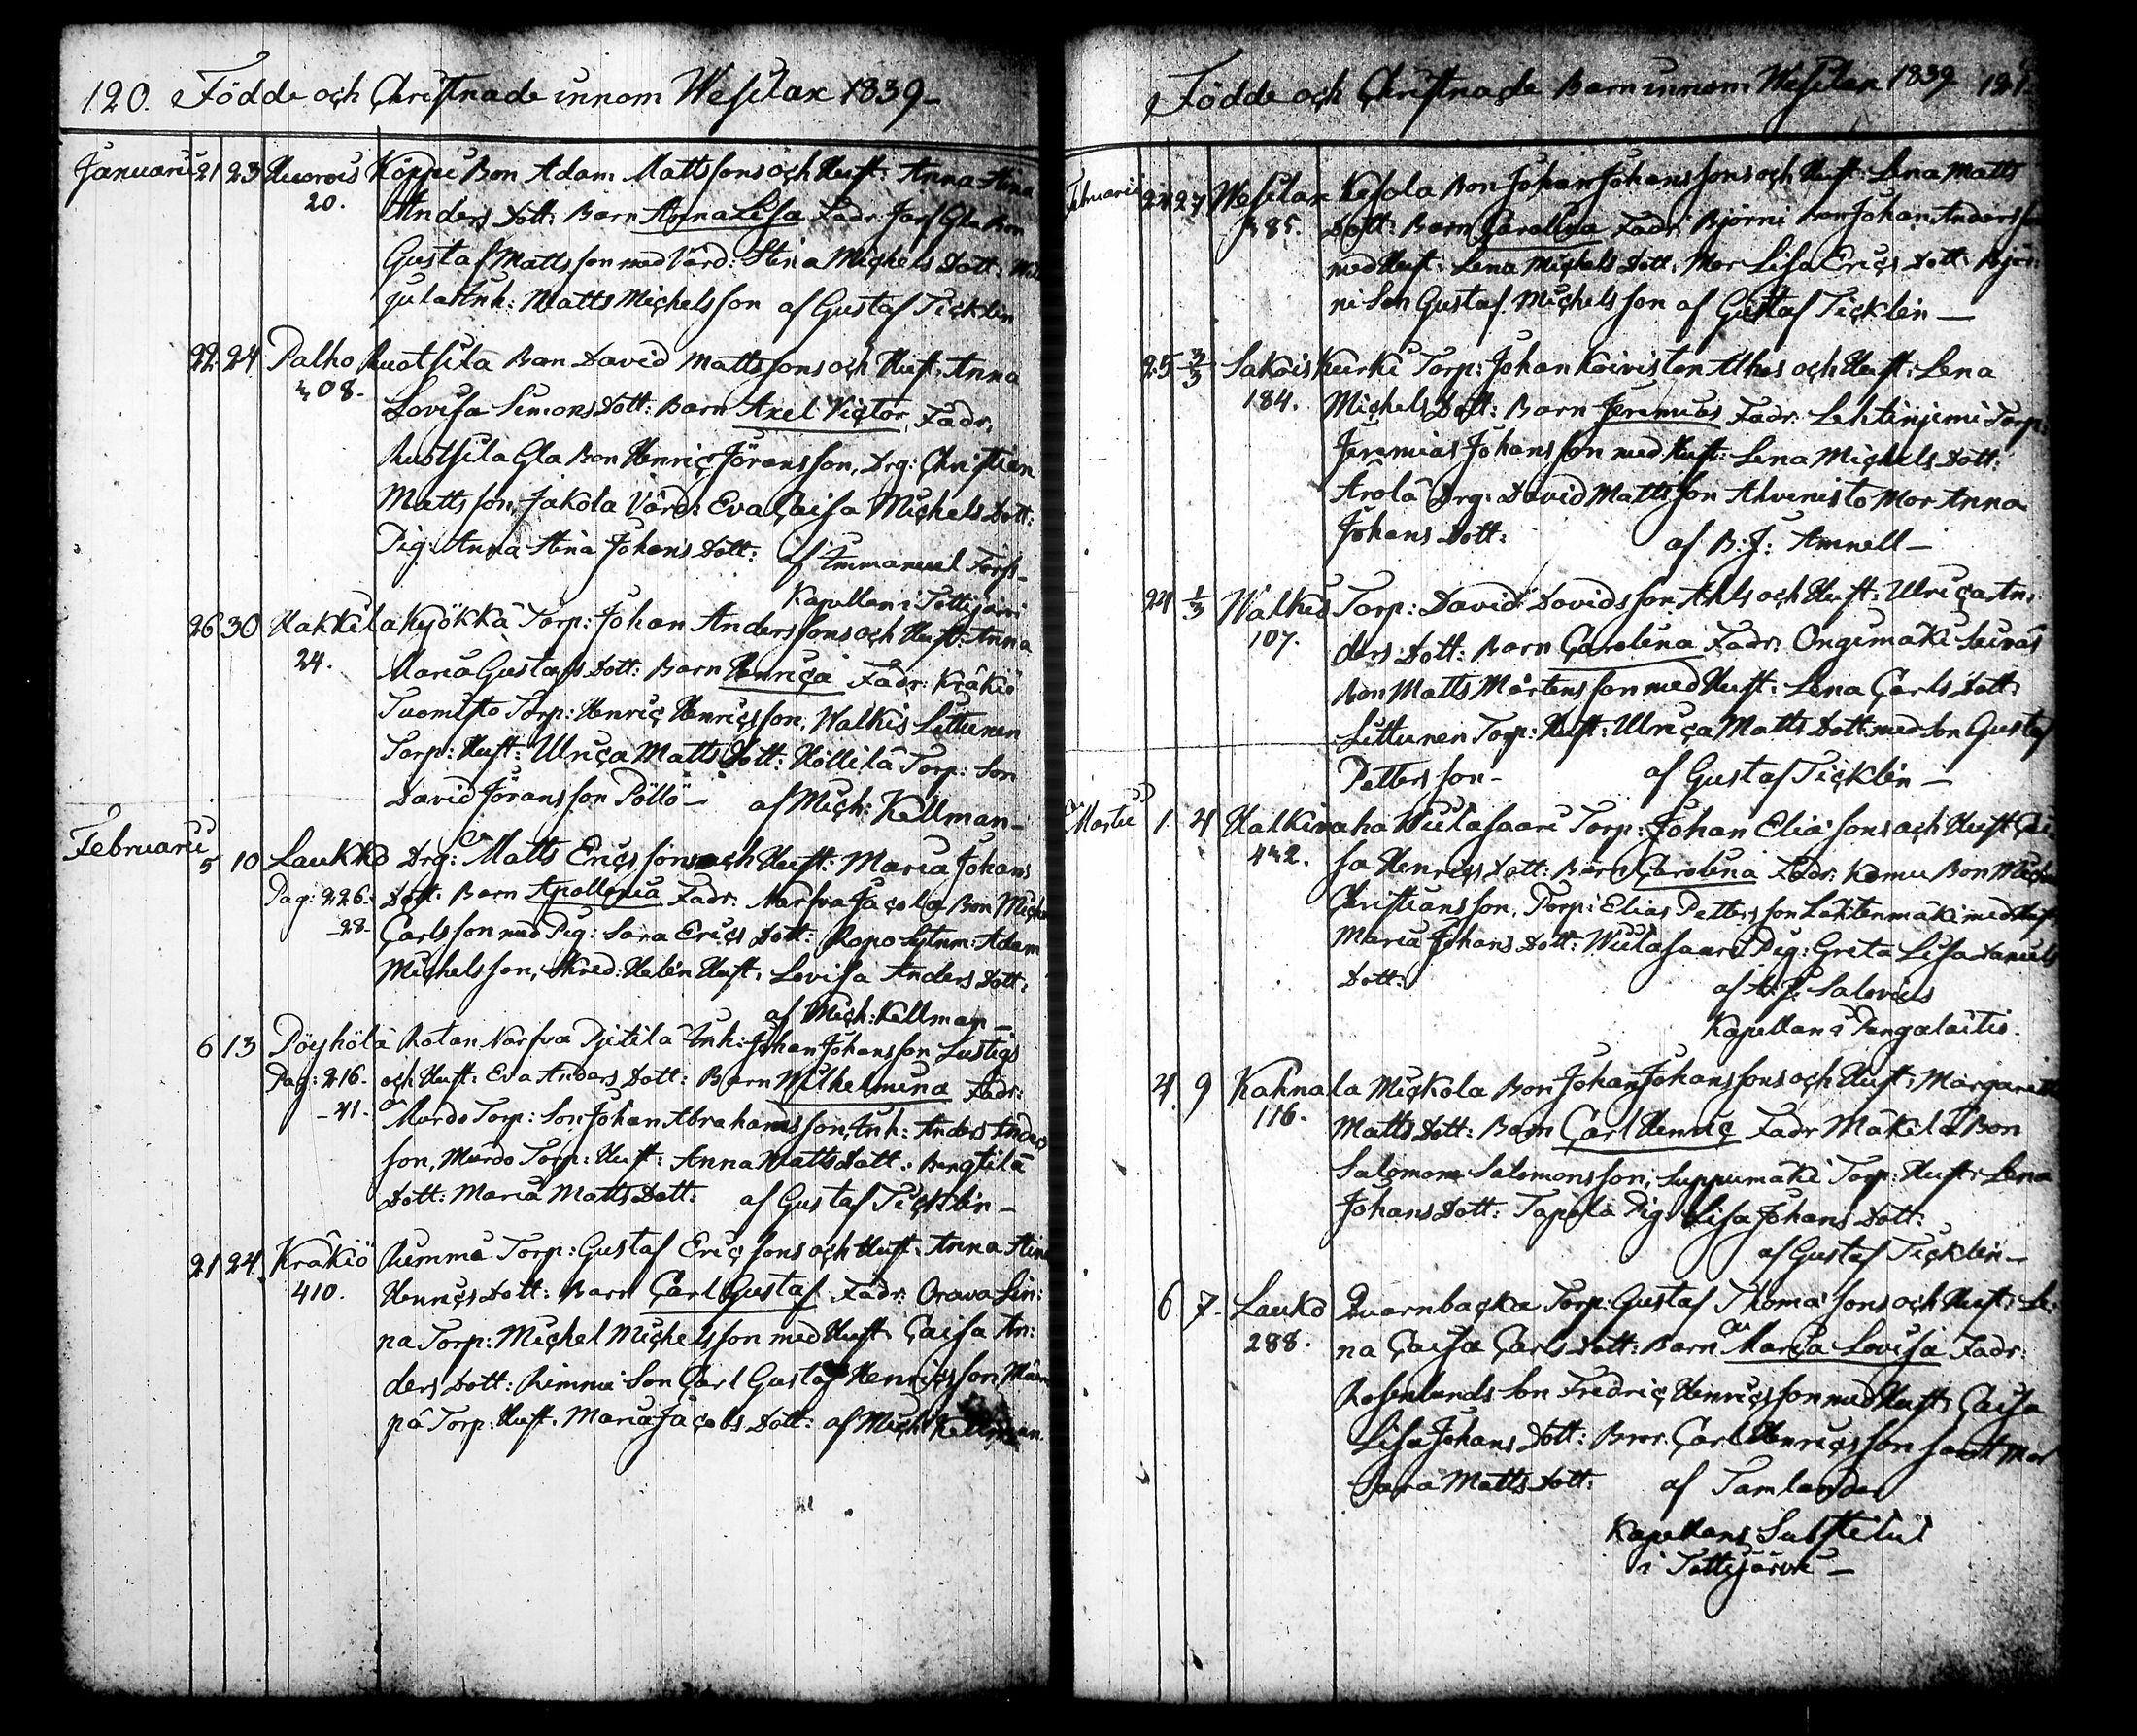 120. Födde och Christnade innom Wesilax 1839-
Januarii 21 23 Huorois Köppi Bon Adam Mattssons och Hust: Anna Stina
20. Anders Dott: Barn Anna Lisa Fadr. Gla Bon
Gustaf Matts son med Värd: Stina Michels Dott:
Inh: Matts Michelsson af Gustaf Ticklén
22 24 Palho Ruotsila Bon David Mattssons och Hust. Anna
308. Lovisa Simons Dott: Barn Axel Victor, Fadr.
Ruotsila Gla Bon Henric Göransson, Drg: Christian
Matts son, Jakola Värd: Eva Caisa Michels Dott:
Pig: Anna Stina Johans Dott: af Immanuel Forss-
Kapellan i Tottijärvi
26 30 Hakkila Kyökkä Torp: Johan Anderssons och Hust: Anna
24. Maria Gustafs Dott: Barn Henrica Fadr: Kräkiö
Tuomisto Torp: Henric Henricsson, Walkis Littunen
Torp: Hust: Ulrica Matts Dott: Höllilä Torp: Son
David Göransson Pöllö- af Mich: Kellman-
Februarii 5 10 Laukko Drg: Matts Ericssons och Hust: Maria Johans
Pag: 226. Dott. Barn Apollonia Fadr. Narfva Jacola Bon Michel
-28- Carlsson med Pig: Sara Erics Dott: Ropo Sytnm: Adam
Michelsson, Skred: Helén Hust: Lovisa Anders Dott:
af Mich: Kellman-
6 13 Pöyhölä Rotan Narfva Pjetilä Inh: Johan Johansson Lustigs
Pag: 216. och Hust: Eva Anders Dott: Barn Wilhelmina Fadr:
-41- Murdo Torp: Son Johan Abrahamsson, Inh: Anders Anders
son, Murdo Torp: Hust: Anna Matts Dott: Bengtilä
Dott: Maria Matts Dott: af Gustaf Ticklén-
21 24. Kräkiö Rimmi Torp: Gustaf Ericssons och Hust. Anna Stina
410. Henrics Dott: Barn Carl Gustaf Fadr: Orava Lin:
na Torp: Michel Michelsson med Hust: Caisa An:
ders Dott: Rimmi Son Carl Gustaf Henricsson
pä Torp: Hust. Maria Jacobs Dott: af Mich: Kellman.
Födde och Christnade Barn innom Wesilax 1839 121.
Februarii 24 27 Wesilax Kesola Bon Johan Johanssons och Hust: Lena Matts
385. Dott: Barn Carolina Fadr: Björni Bon Johan Andersson
med Hust: Lena Michels Dott, Mor Lisa Erics Dott: Björ:
ni Son Gustaf Michelsson af Gustaf Ticklén-
25 3/3 Sakois Kurki Torp: Johan Koivisten Alhos och Hust: Lena
184. Michels Dott: Barn Jeremias Fadr: Lehtinjemi Torp:
Jeremias Johansson med Hust: Lena Michels Dott:
Arola Drg: David Mattsson Ahvenisto Mor Anna
Johans Dott: af B: J: Amnell-
24 1/3 Walkis Torp: David Davidsson Ahls och Hust: Ulrica An:
107. ders Dott: Barn Carolina Fadr: Ongimäki Seiväs
Bon Matts Mårtensson med Hust: Lena Carls Dott:
Littunen Torp: Hust: Ulrica Matts Dott: med Son Gustaf
Pettersson- af Gustaf Ticklén-
Martii 1. 4 Halkivaha Wiilasaari Torp: Johan Elia sons och Hust: Cai
442. sa Henrics Dott: Barn Carolina Fadr: Komu Bon Michel
Christiansson, Torp: Elias Pettersson Lähtenmäki med Hust:
Maria Johans Dott: Wiilasaari Pig: Greta Lisa Daniels
Dott: af A: J: Salovius
Kapellan i Pungalaitio.
4. 9 Kahnala Mickola Bon Johan Johanssons och Hust: Margareta
116. Matts Dott: Barn Carl Henric Fadr Mäkelä Bon
Salomon Salomonsson, Suppumäki Torp: Hust: Lena
Johans Dott: Tapola Pig: Lisa Johans Dott:
af Gustaf Ticklén-
6 7. Lauko Quarnbacka Torp: Gustaf Thoma sons och Hust: Le:
288. na Caisa Carls Dott: Barn Maria Lovisa Fadr:
Rosenlunds Son Fredric Henricsson med Hust: Caisa
Lisa Johans Dott: Bror Carl Henricsson samt Mor
Sara Matts Dott: af Tamlander
Kapellans Substitut
i Tottijärvi-